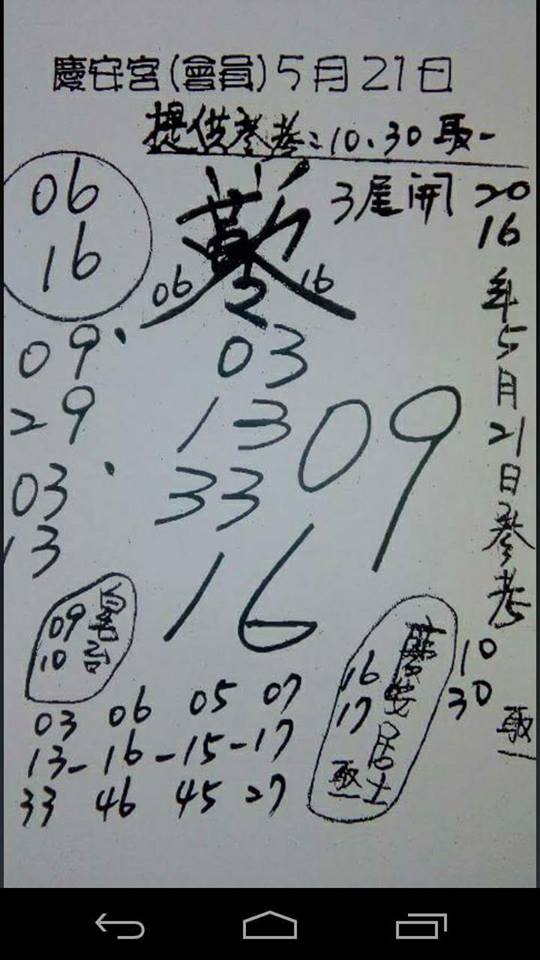 慶安宮(會員)5月21日
提供參考:10、30取一
06
16
3尾開
06 16
2016年5月21日參考
09
29
03
13
03
13
33
09
16
09
10
16
17
慶安居士
取一
10
30
取一
03 06 05 07
13-16-15-17
33 46 45 27